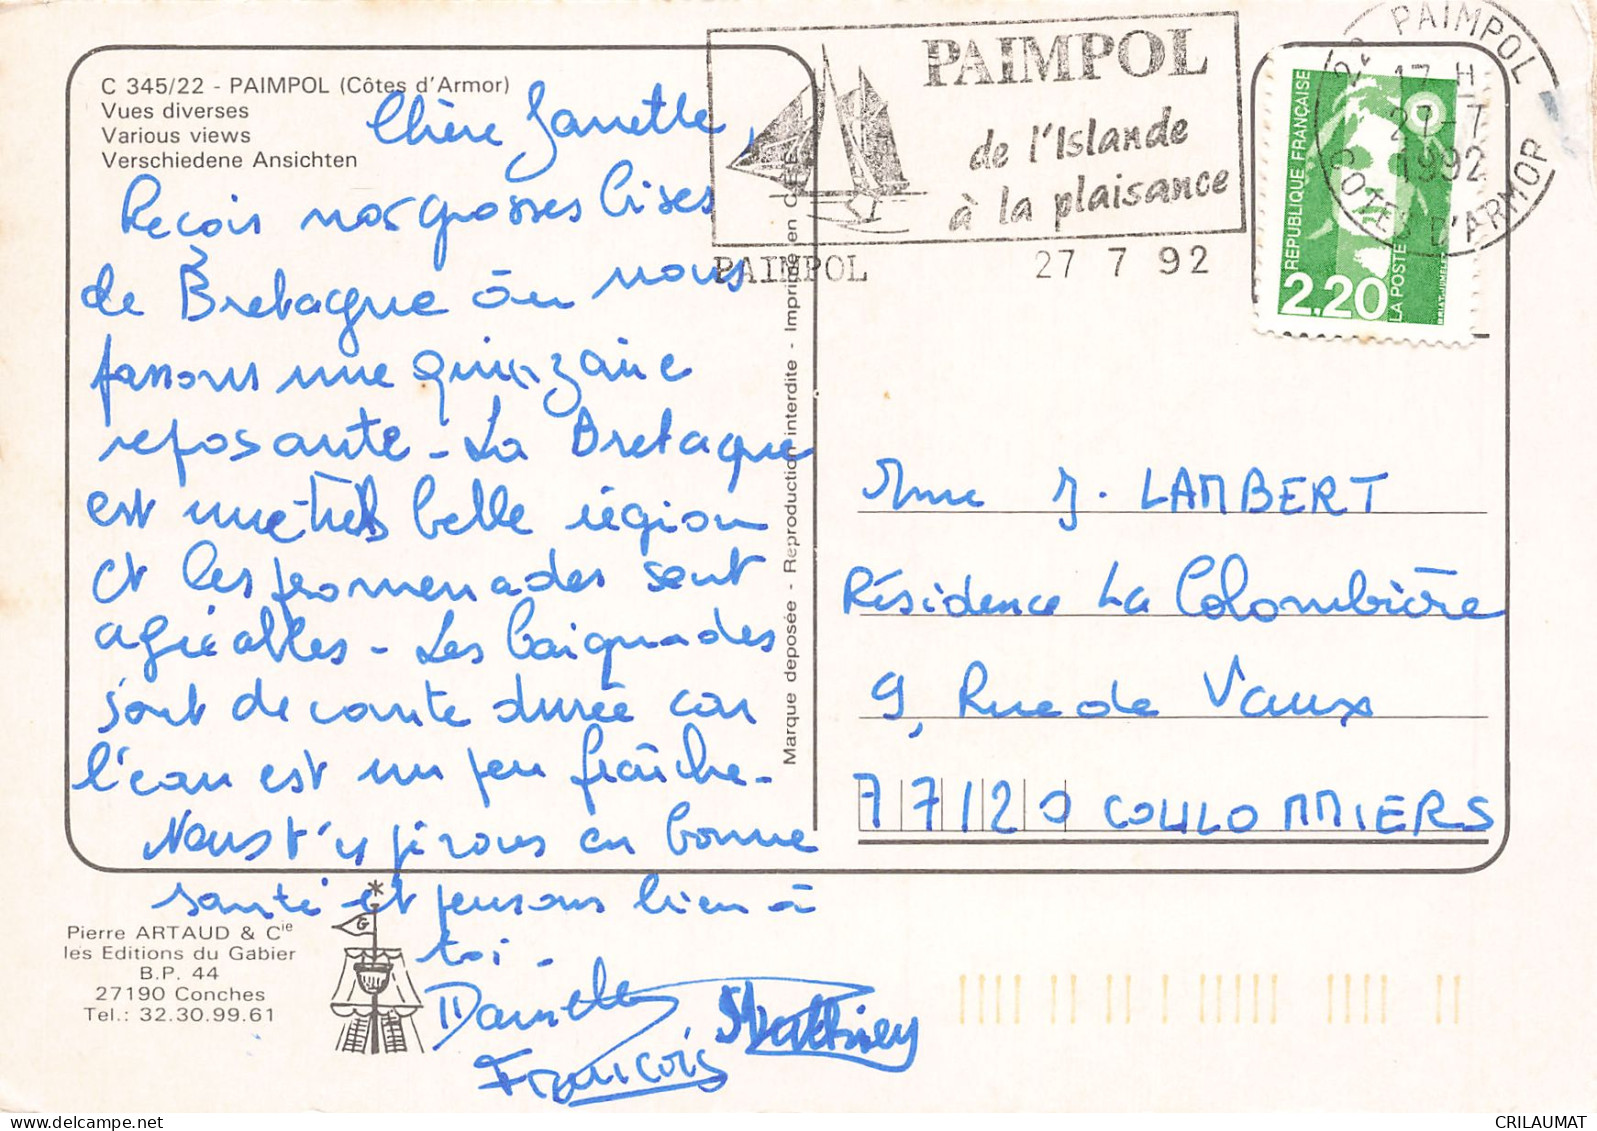 C 345/22 - PAIMPOL (Côtes d'Armor)
Vues diverses
Various views
Verschiedene Ansichten
Chère Janette,
Reçois nos grosses bises
de Bretagne où nous
passons une quinzaine
reposante - La Bretagne
est une très belle région
et les promenades sont
agréables - Les baignades
sont de courte durée car
l'eau est un peu fraîche -
Nous t'y pirons en bonne
santé et pensons bien à
toi -
Danielle Mathieu
François
Pierre ARTAUD & Cie
les Editions du Gabier
B.P. 44
27190 Conches
Tel.: 32.30.99.61
G
Marque déposée - Reproduction interdite - Imprimé en CEE
PAIMPOL
de l'Islande
à la plaisance
PAIMPOL 27 7 92
22 PAIMPOL
17 H
27-7
1992
COTES D'ARMOR
REPUBLIQUE FRANÇAISE
2,20
LA POSTE
Mme J. LAMBERT
Résidence La Colombière
9, Rue de Vaux
77120 COULOMMIERS
CRILAUMAT